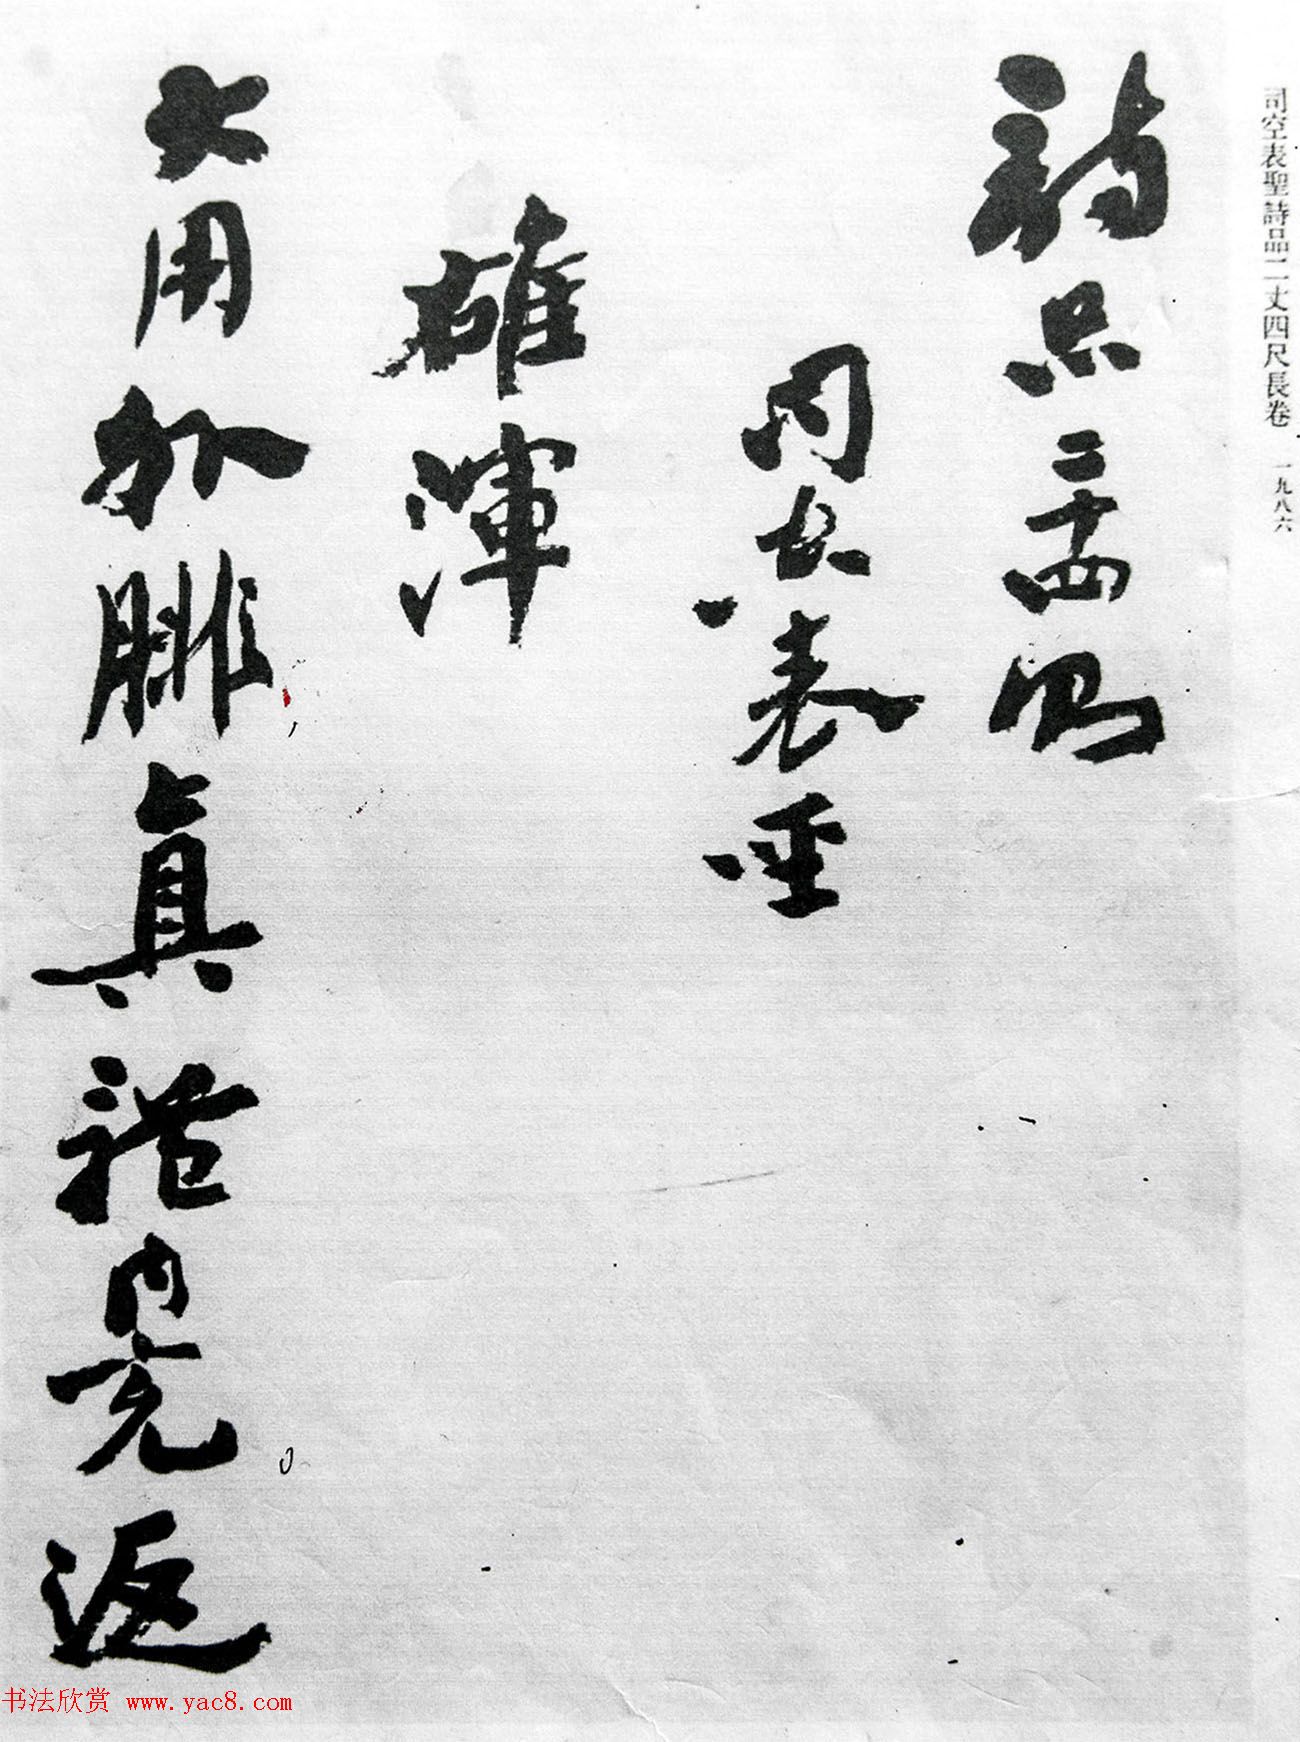 司空表聖詩品二丈四尺長卷 一九八六
詩品二十四則
司空表聖
雄渾
大用外腓真體內充返
书法欣赏 www.yac8.com